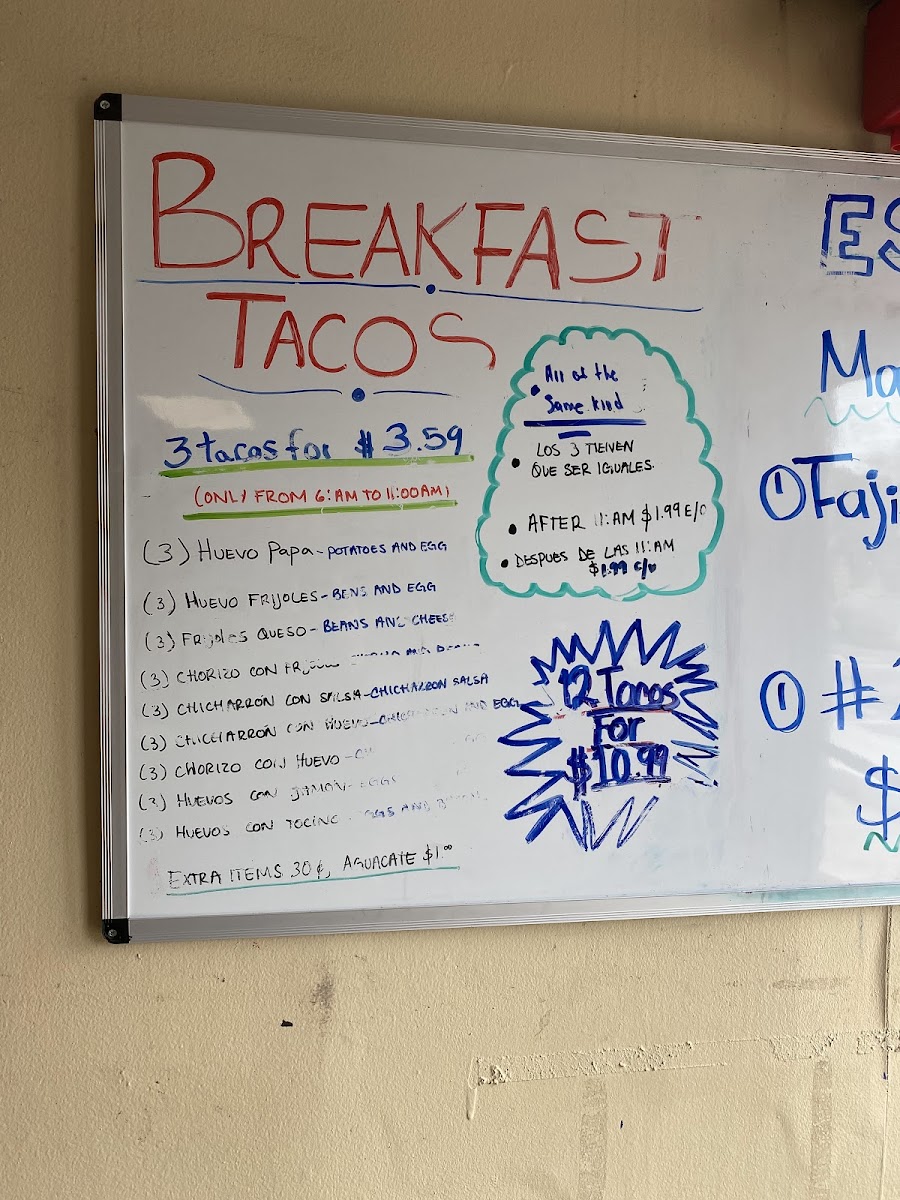 BREAKFAST
TACOS
3 tacos for $3.59
(ONLY FROM 6:AM TO 11:00AM)
(3) HUEVO PaPa - POTATOES AND EGG
(3) HUEVO FRIJOLES - BENS AND EGG
(3) FRIJOLES QUESO - BEANS AND CHEESE
(3) CHORIZO CON
(3) CHICHARRÓN CON SALSA - CHICHARRON SALSA
(3) CHICHARRÓN CON HUEVO - CHICHARRON AND EGG
(3) CHORIZO CON HUEVO -
(3) HUEVOS CON JAMON - EGGS
(3) HUEVOS CON TOCINO - EGGS AND
EXTRA ITEMS 30¢, AGUACATE $1.00
• All of the
Same kind
• LOS 3 TIENEN
QUE SER IGUALES.
• AFTER 11:AM $1.99 E/O
• DESPUES DE LAS 11:AM
$1.99 c/u
12 Tacos
For
$10.99
ES
Ma
① Faji
① #2
$